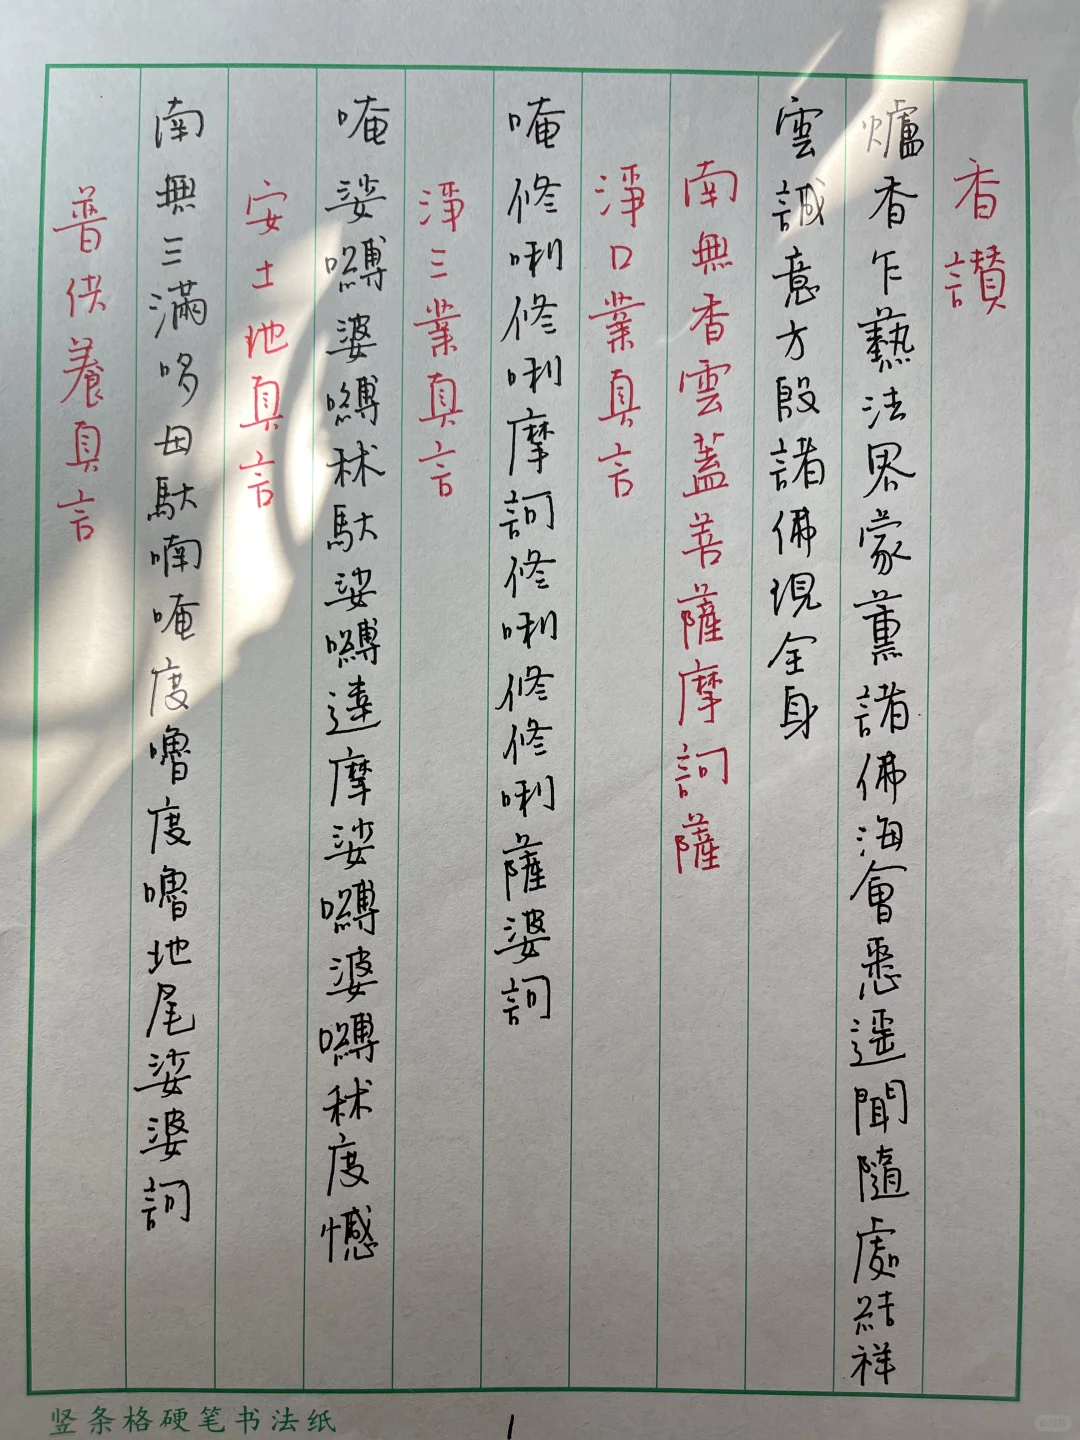 香讚
爐香乍爇法界蒙薰諸佛海會悉遥聞隨處結祥
雲誠意方殷諸佛現全身
南無香雲蓋菩薩摩訶薩
淨口業真言
唵修唎修唎摩訶修唎修修唎薩婆訶
淨三業真言
唵娑嚩婆嚩秫馱娑嚩達摩娑嚩婆嚩秫度憾
安土地真言
南無三滿哆母馱喃唵度嚕度嚕地尾娑婆訶
普供養真言
竖条格硬笔书法纸
1